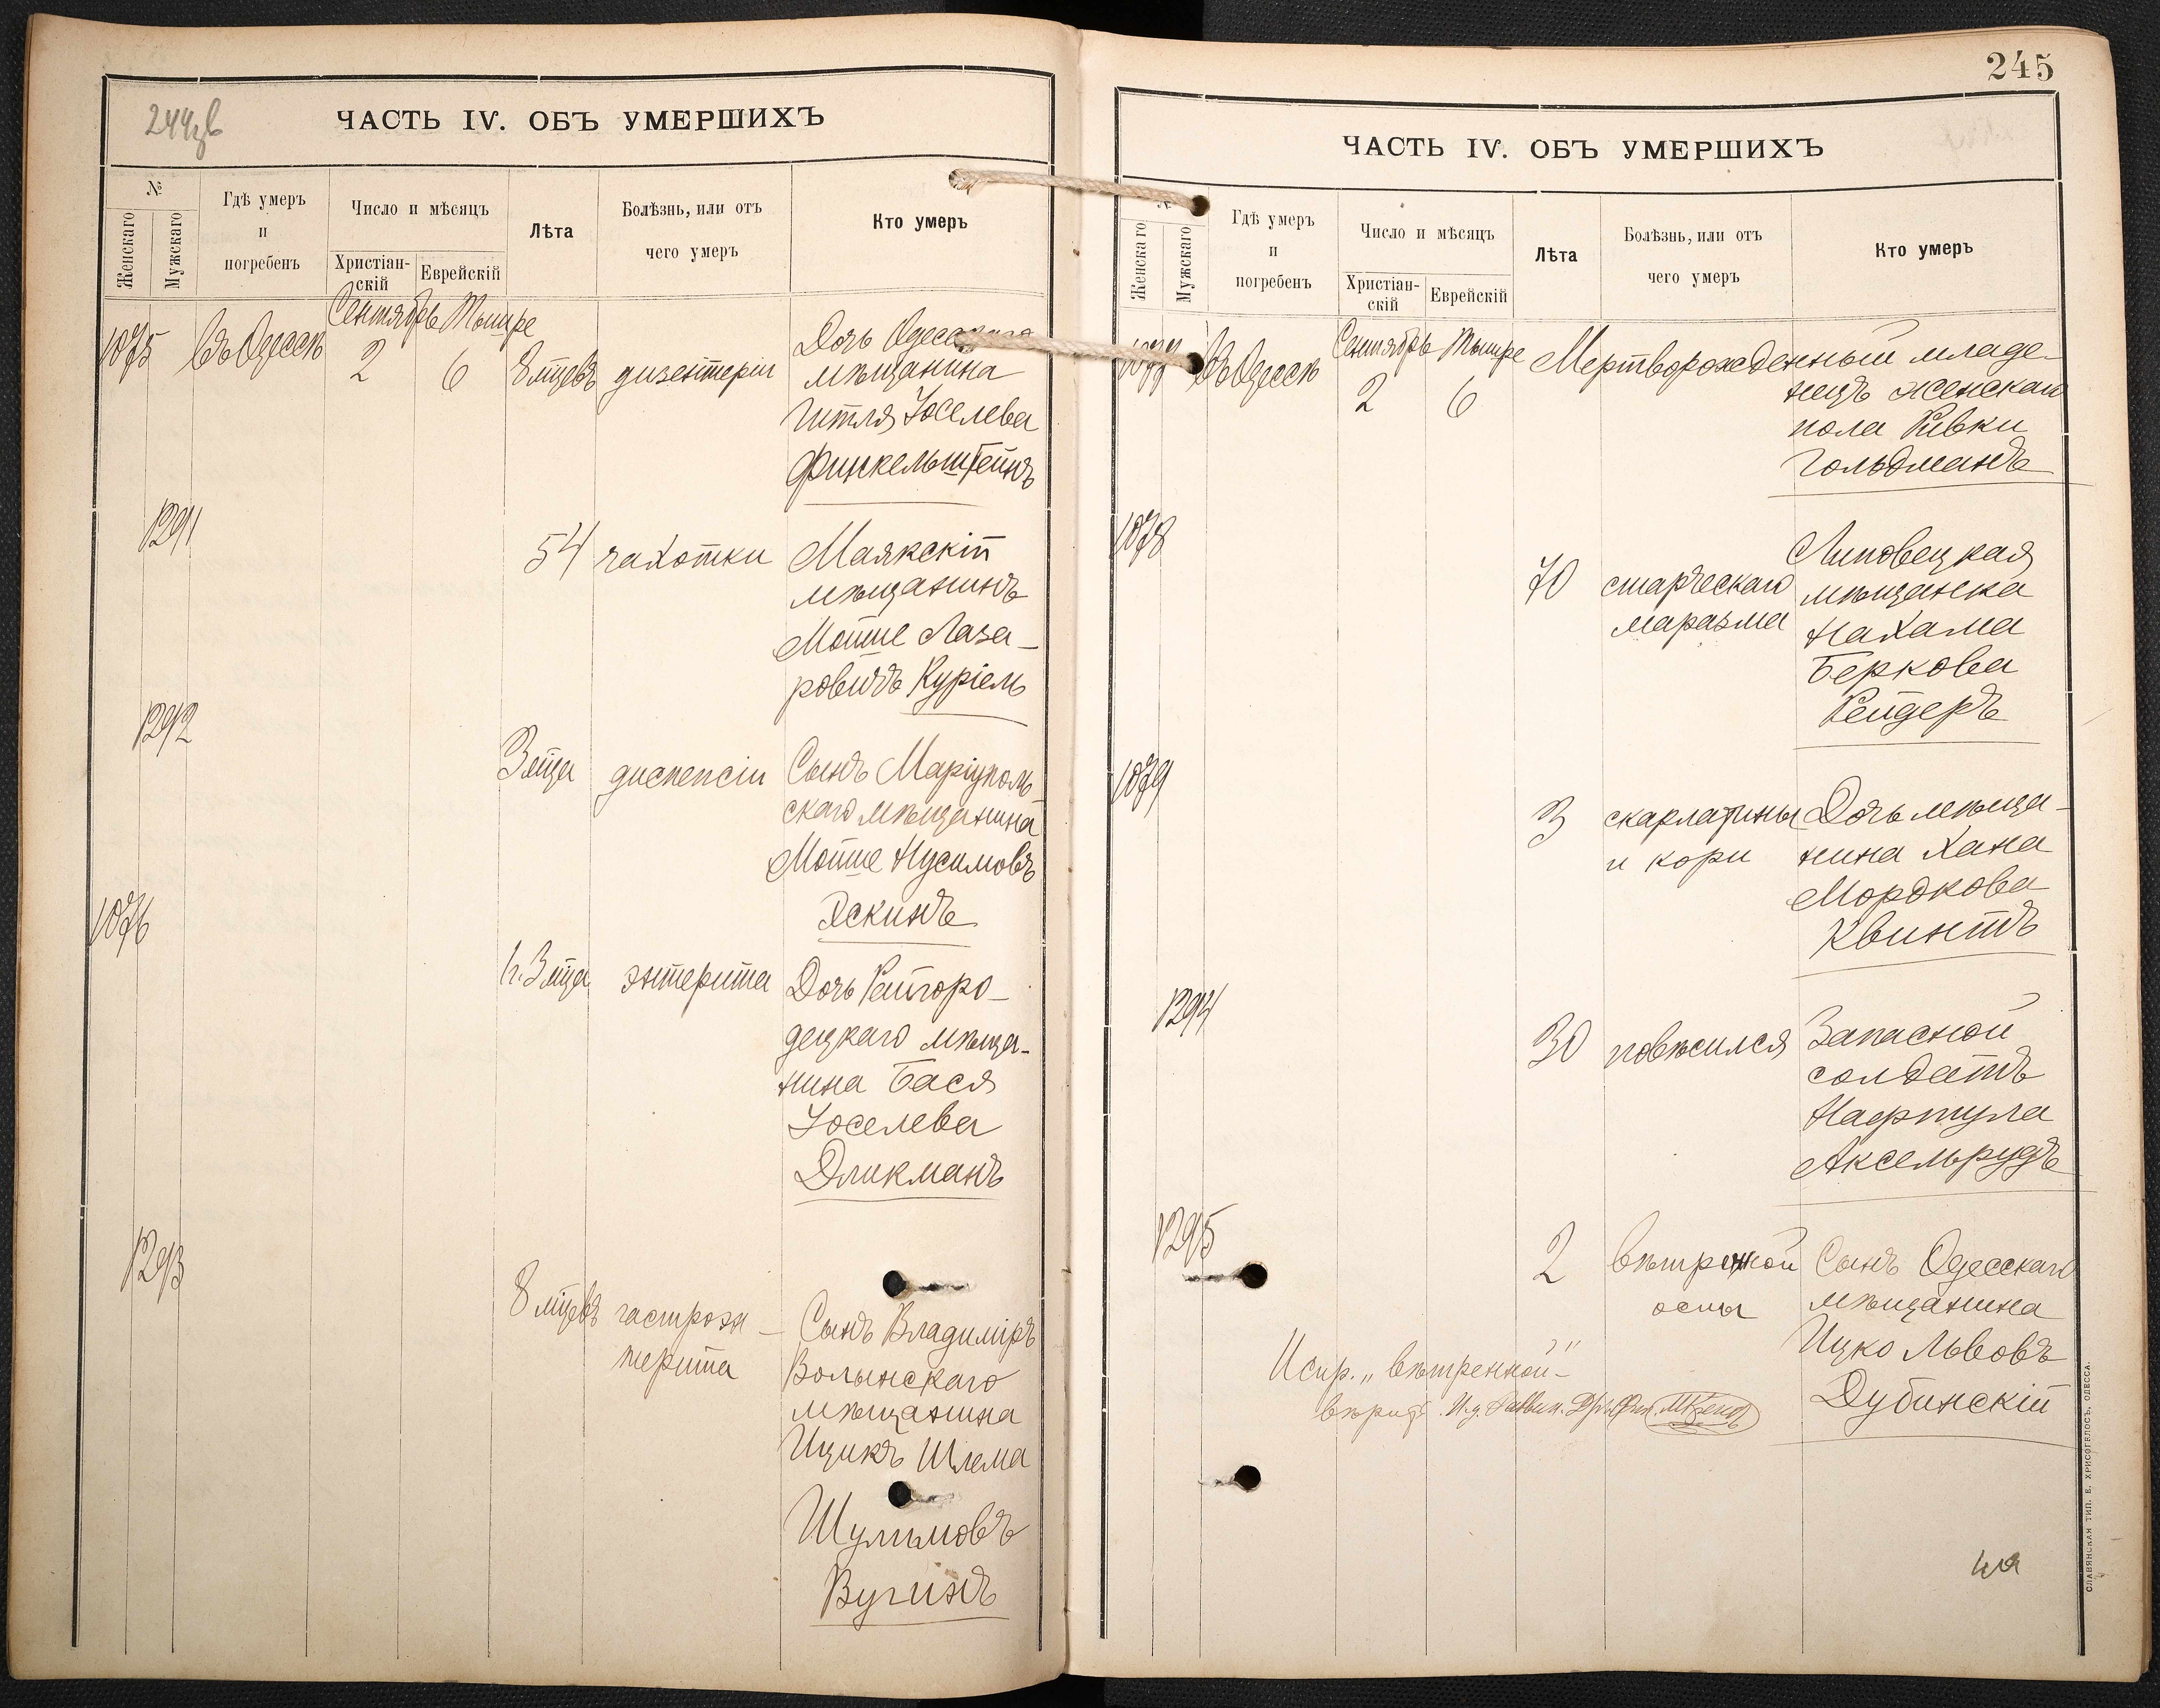 244зв
ЧАСТЬ IV. ОБЪ УМЕРШИХЪ
№
Женскаго
Мужскаго
Гдѣ умеръ
и
погребенъ
Число и мѣсяцъ
Христіан-
скій
Еврейскій
Лѣта
Болѣзнь, или отъ
чего умеръ
Кто умеръ
Сентябрь Тышре
1075 Въ Одессѣ 2 6 8 мцевъ дизентеріи Дочь Одесскаго
мѣщанина
Гитля Іоселева
Финкельштейнъ
1291
54 чахотки Маякскій
мѣщанинъ
Мойше Лаза-
ровичъ Куріель
1292
3 мца диспепсіи Сынъ Маріуполь
скаго мѣщанина
Мойше Нусимовъ
Яскинъ
1076
1 г. 3 мца энтерита Дочь Райгоро-
децкаго мѣща-
нина Бася
Іоселева
Дликманъ
1293
8 мцевъ гастроэн- Сынъ Владиміръ
терита Волынскаго
мѣщанина
Ицикъ Шлема
Шулимовъ
Вугинъ
245
ЧАСТЬ IV. ОБЪ УМЕРШИХЪ
Женскаго
Мужскаго
Гдѣ умеръ
и
погребенъ
Число и мѣсяцъ
Христіан-
скій
Еврейскій
Лѣта
Болѣзнь, или отъ
чего умеръ
Кто умеръ
Сентябрь Тышре
1077 Въ Одессѣ 2 6 Мертворожденный младе-
нецъ женскаго
пола Ривки
Гольдманъ
1078
70 старческаго Липовецкая
маразма мѣщанка
Нахама
Беркова
Рейдеръ
1079
3 скарлатины Дочь мѣща-
и кори нина Хана
Мордкова
Квинтъ
1294
30 повѣсился Запасной
солдатъ
Нафтула
Аксельрудъ
1295
2 вѣтренной Сынъ Одесскаго
оспы мѣщанина
Ицко Львовъ
Дубинскій
Испр. „вѣтренной"-
вѣрно: И.д. Раввин.
СЛАВЯНСКАЯ ТИП. Е. ХРИСОГЕЛОСЪ, ОДЕССА.